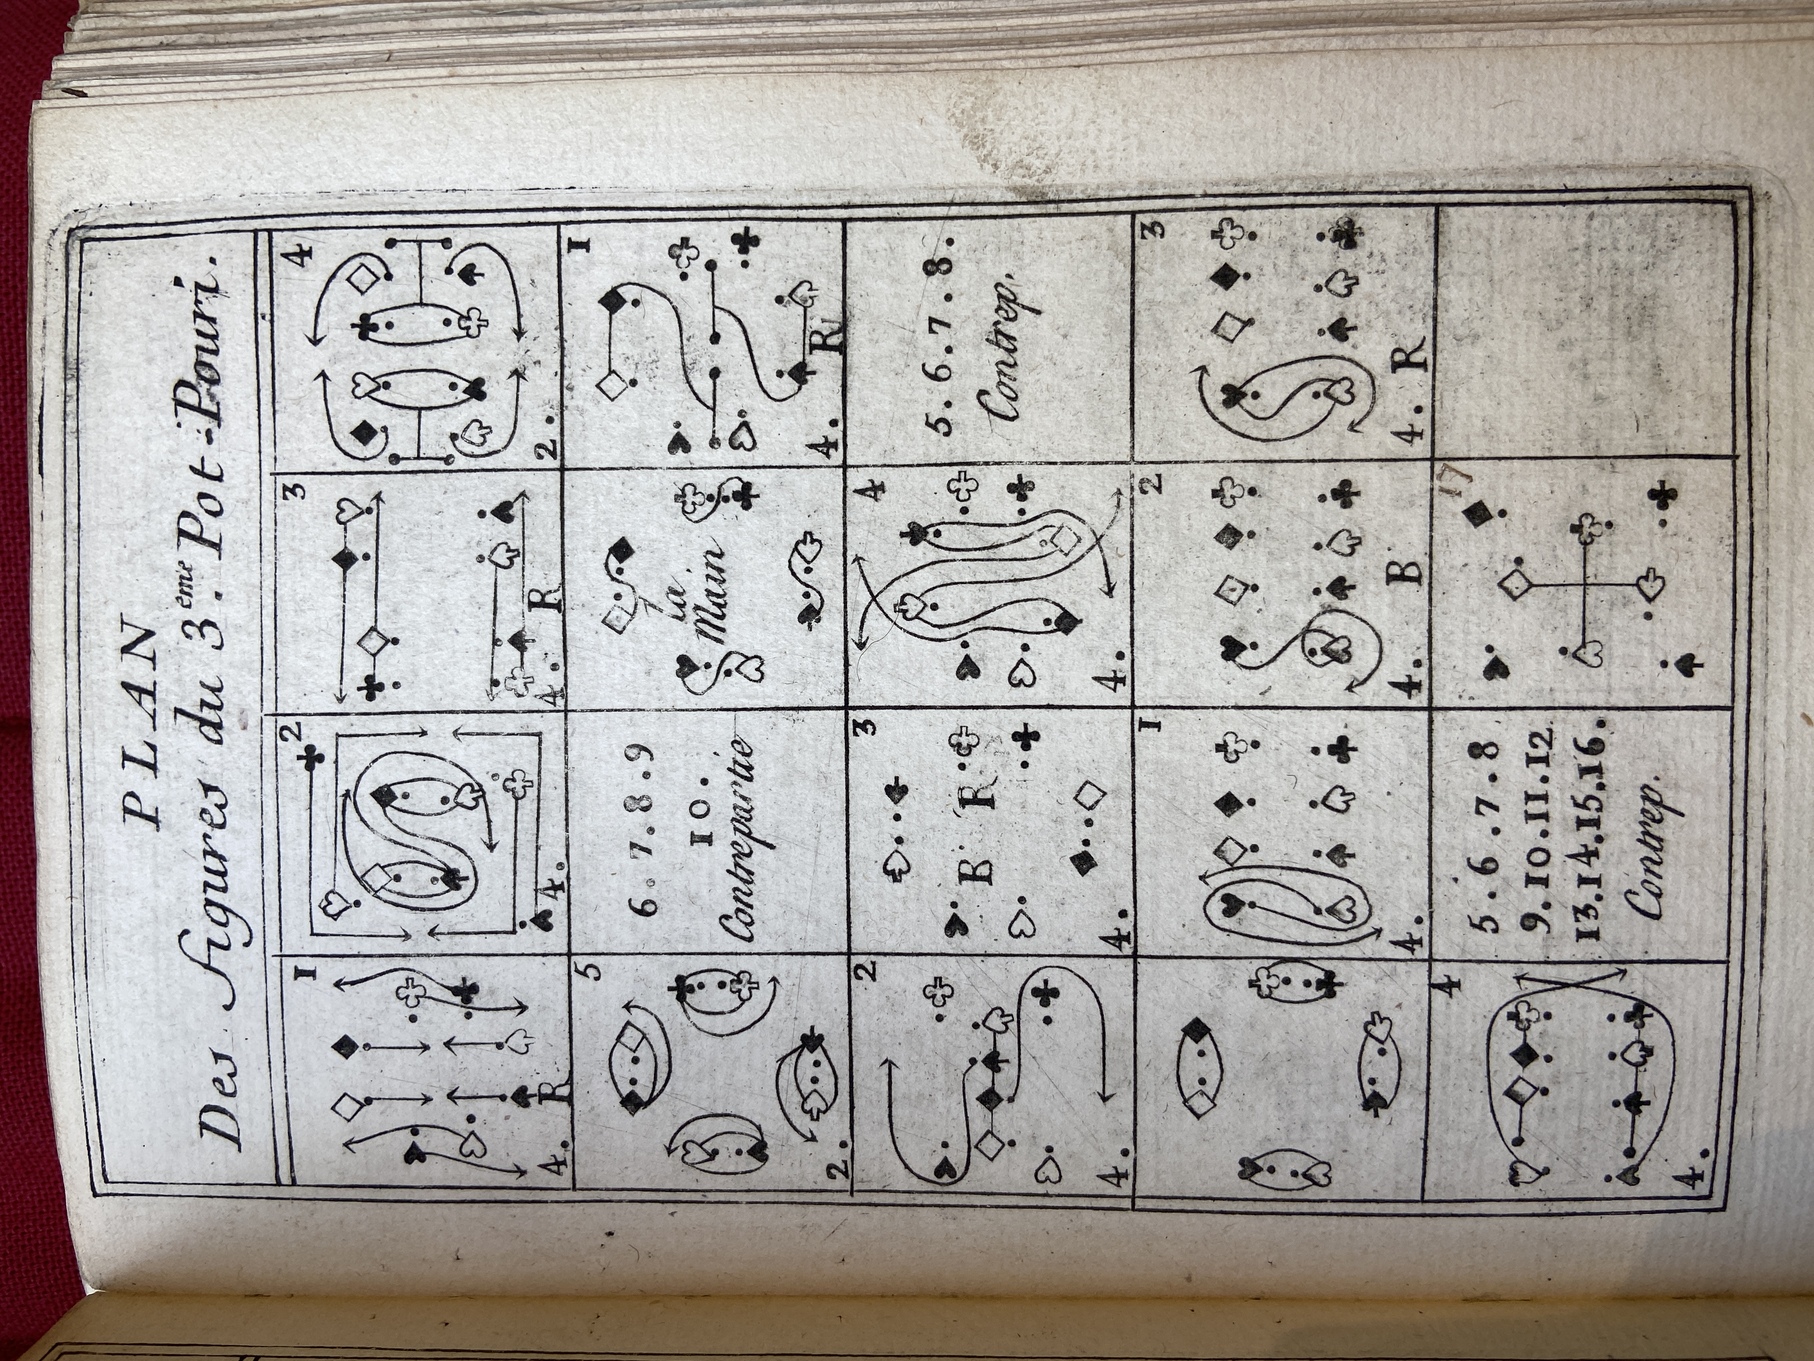 PLAN
Des figures du 3.eme Pot-Pouri.
1
4. R
2
4.
3
4. R
4
2.
5
2.
6.7.8.9
10.
Contrepartie
la
Main
1
4. R
2
4.
3
B R
4.
4
4.
5.6.7.8.
Contrep.
1
4.
2
4. B
3
4. R
4
4.
5.6.7.8
9.10.11.12
13.14.15.16.
Contrep.
17